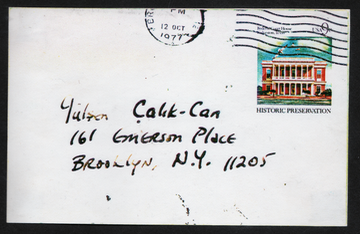 PM
12 OCT
1977
USA 9
HISTORIC PRESERVATION
Çalık-Can
161 EMERSON PLACE
BROOKLYN, N.Y. 11205